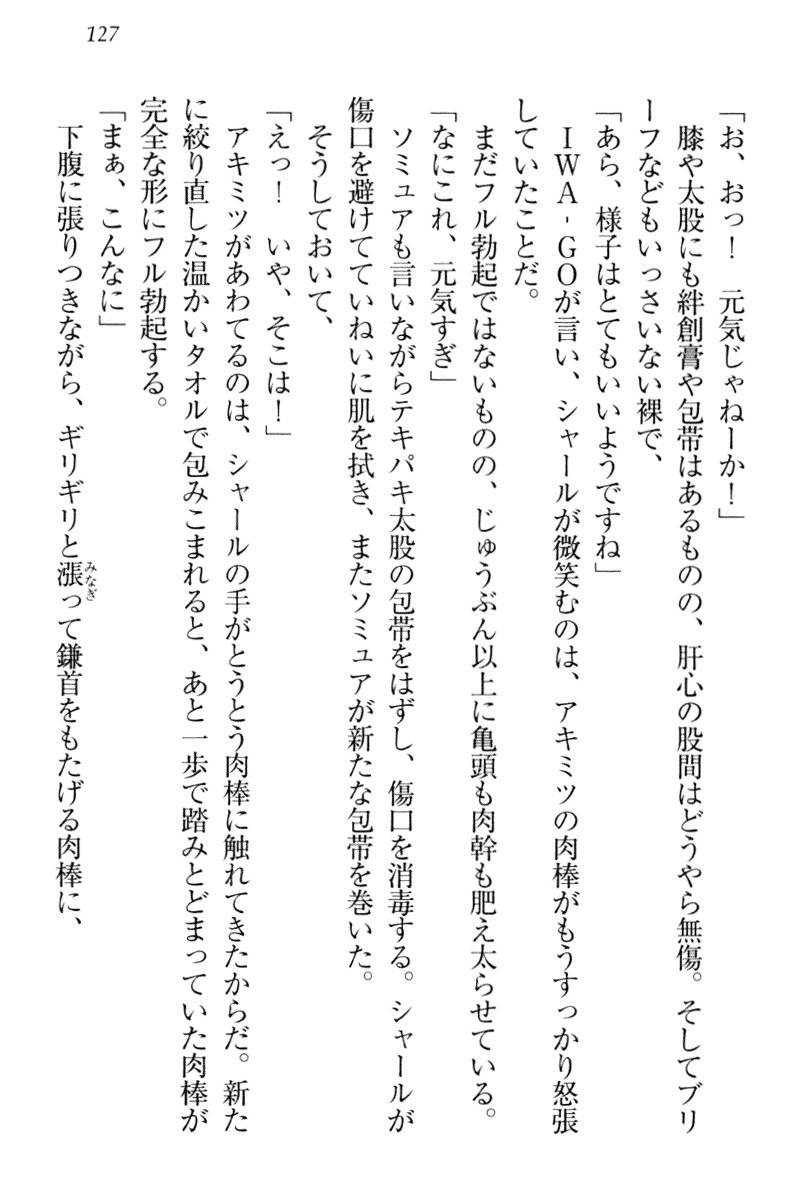 127
「お、おっ！　元気じゃねーか！」
　膝や太股にも絆創膏や包帯はあるものの、肝心の股間はどうやら無傷。そしてブリ
ーフなどもいっさいない裸で、
「あら、様子はとてもいいようですね」
　ＩＷＡ‐ＧＯが言い、シャールが微笑むのは、アキミツの肉棒がもうすっかり怒張
していたことだ。
　まだフル勃起ではないものの、じゅうぶん以上に亀頭も肉幹も肥え太らせている。
「なにこれ、元気すぎ」
　ソミュアも言いながらテキパキ太股の包帯をはずし、傷口を消毒する。シャールが
傷口を避けてていねいに肌を拭き、またソミュアが新たな包帯を巻いた。
　そうしておいて、
「えっ！　いや、そこは！」
　アキミツがあわてるのは、シャールの手がとうとう肉棒に触れてきたからだ。新た
に絞り直した温かいタオルで包みこまれると、あと一歩で踏みとどまっていた肉棒が
完全な形にフル勃起する。
「まぁ、こんなに」
　下腹に張りつきながら、ギリギリと漲みなぎって鎌首をもたげる肉棒に、